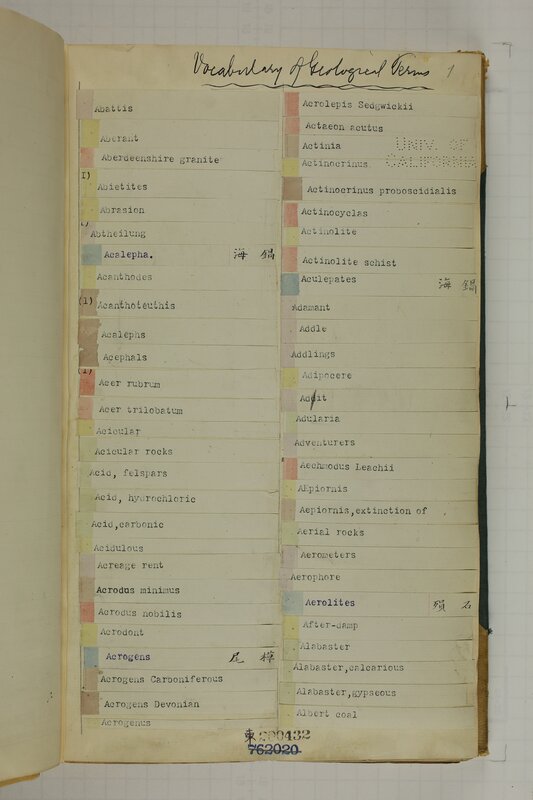 Vocabulary of Geological Terms 1
Abattis
Aberant
Aberdeenshire granite
I)
Abietites
Abrasion
Abtheilung
Acalepha. 海 鍋
Acanthodes
(1) Acanthoteuthis
Acalephs
Acephals
(1)
Acer rubrum
Acer trilobatum
Acicular
Acicular rocks
Acid, felspars
Acid, hydrochloric
Acid,carbonic
Acidulous
Acreage rent
Acrodus minimus
Acrodus nobilis
Acrodont
Acrogens 尾 樽
Acrogens Carboniferous
Acrogens Devonian
Acrogenus
Acrolepis Sedgwickii
Actaeon acutus
Actinia
UNIV. OF
CALIFORNIA
Actinocrinus
Actinocrinus proboscidialis
Actinocyclas
Actinolite
Actinolite schist
Aculepates 海 鍋
Adamant
Addle
Addlings
Adipocere
Addit
Adularia
Adventurers
Aechmodus Leachii
AEpiornis
Aepiornis,extinction of
Aerial rocks
Aerometers
Aerophore
Aerolites 殞 石
After-damp
Alabaster
Alabaster,calcarious
Alabaster,gypseous
Albert coal
東200432
762020